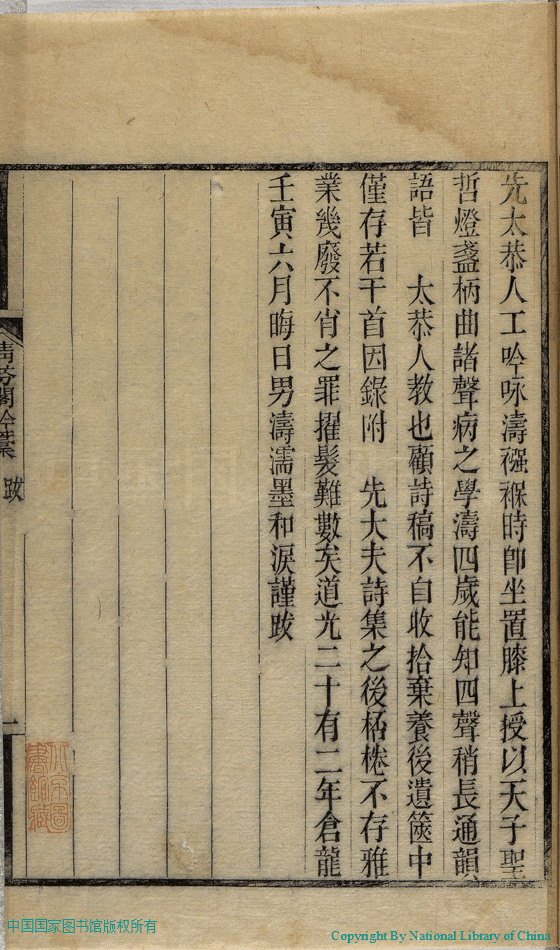 先太恭人工吟咏濤襁褓時即坐置膝上授以天子聖
哲燈盞柄曲諸聲病之學濤四歲能知四聲稍長通韻
語皆　太恭人教也顧詩稿不自收拾棄養後遺篋中
僅存若干首因錄附　先大夫詩集之後桮棬不存雅
業幾廢不肖之罪擢髮難數矣道光二十有二年倉龍
壬寅六月晦日男濤濡墨和淚謹跋
清芬閣吟藁　跋
一
中国国家图书馆版权所有
Copyright By National Library of China